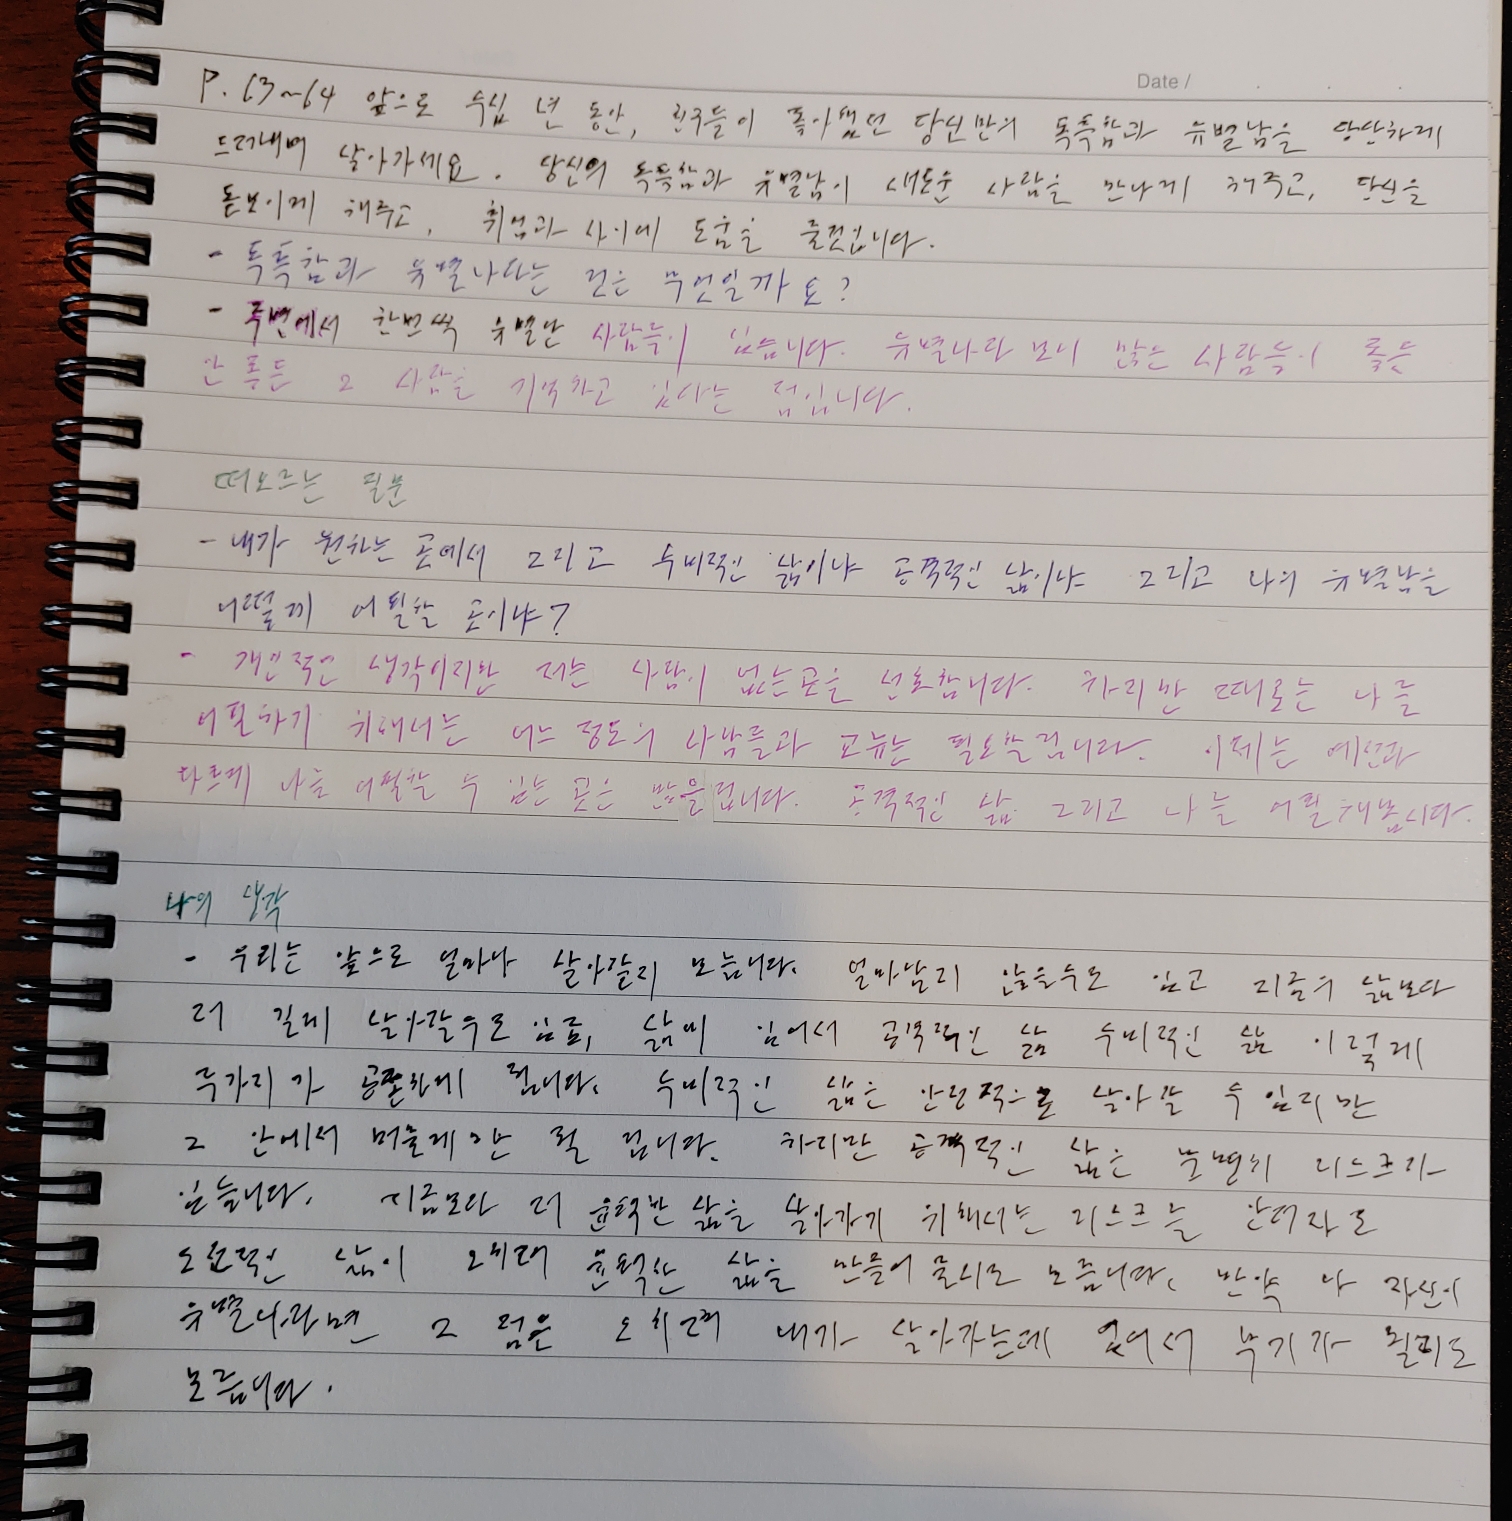 Date /
P. 63~64 앞으로 수십 년 동안, 친구들이 좋아했던 당신만의 독특함과 유별남을 당당하게
드러내며 살아가세요. 당신의 독특함과 유별남이 새로운 사람을 만나게 해주고, 당신을
돋보이게 해주고, 취업과 사이에 도움을 줄것입니다.
- 독특함과 유별나다는 것은 무엇일까요?
- 주변에서 한번씩 유별난 사람들이 있습니다. 유별나다 보니 많은 사람들이 좋든
안 좋든 그 사람을 기억하고 있다는 점입니다.
떠오르는 질문
- 내가 원하는 곳에서 그리고 수비적인 삶이냐 공격적인 삶이냐 그리고 나의 유별남을
어떻게 어필할 곳이냐?
- 개인적인 생각이지만 저는 사람이 없는곳을 선호합니다. 하지만 때로는 나를
어필하기 위해서는 어느정도의 사람들과 교류는 필요할겁니다. 이제는 예전과
다르게 나를 어필할 수 있는 곳은 많을겁니다. 공격적인 삶 그리고 나를 어필해봅시다.
나의 생각
- 우리는 앞으로 얼마나 살아갈지 모릅니다. 얼마남지 않을수도 있고 지금의 삶보다
더 길게 살아갈수도 있죠, 삶에 있어서 공격적인 삶 수비적인 삶 이렇게
두가지가 공존하게 됩니다. 수비적인 삶은 안정적으로 살아갈 수 있지만
그 안에서 머물게만 될 겁니다. 하지만 공격적인 삶은 분명히 리스크가
있습니다. 지금보다 더 윤택한 삶을 살아가기 위해서는 리스크를 안더라도
도전적인 삶이 오히려 윤택한 삶을 만들어 줄지도 모릅니다. 만약 나 자신이
유별나다면 그 점은 오히려 내가 살아가는데 있어서 무기가 될지도
모릅니다.